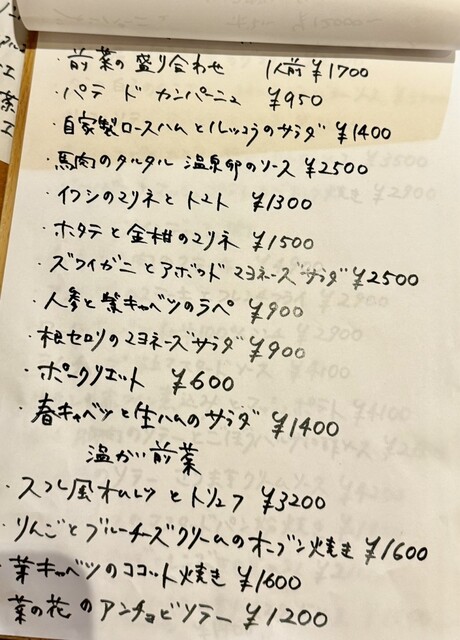 ・前菜の盛り合わせ 1人前¥1700
・パテ ド カンパーニュ ¥950
・自家製ロースハムとルッコラのサラダ ¥1400
・馬肉のタルタル 温泉卵のソース ¥2500
・イワシのマリネとトマト ¥1300
・ホタテと金柑のマリネ ¥1500
・ズワイガニとアボカド マヨネーズサラダ ¥2500
・人参と紫キャベツのラペ ¥900
・根セロリのマヨネーズサラダ ¥900
・ポークリエット ¥600
・春キャベツと生ハムのサラダ ¥1400
温か前菜
・スフレ風オムレツとトリュフ ¥3200
・りんごとブルーチーズクリームのオーブン焼き ¥1600
・芽キャベツのココット焼き ¥1600
菜の花のアンチョビソテー ¥1200